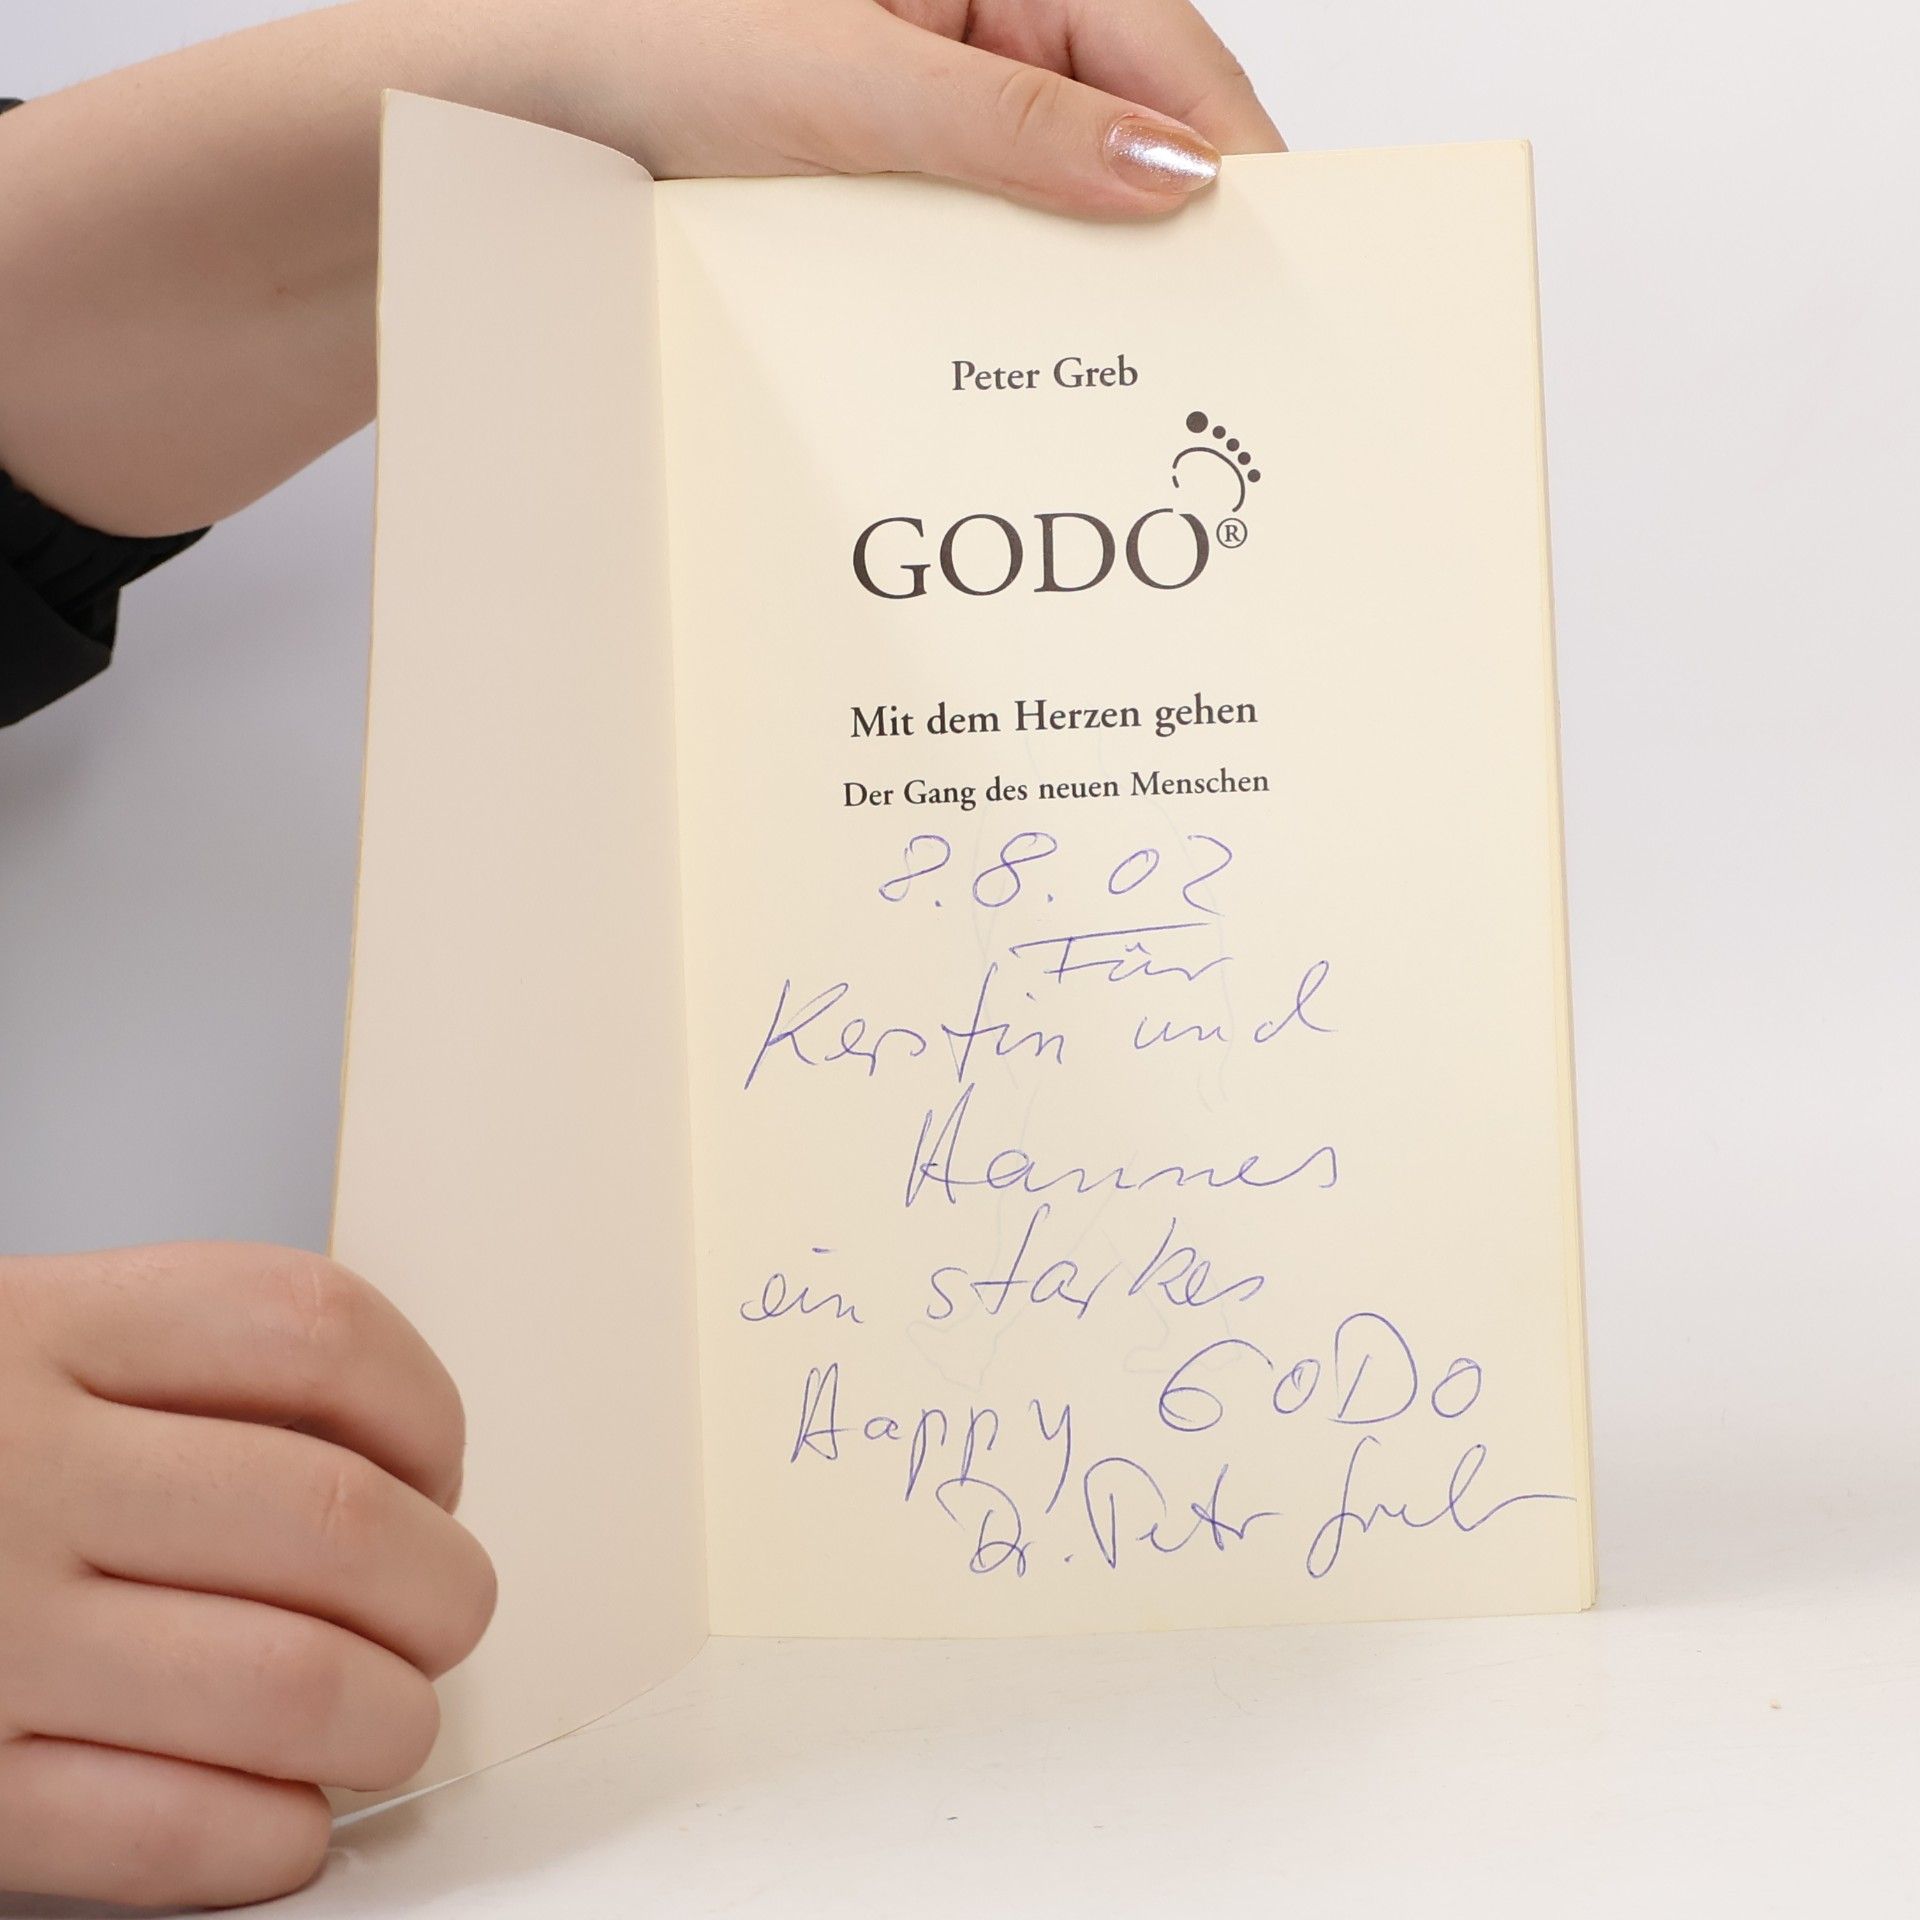 Peter Greb
GODO®
Mit dem Herzen gehen
Der Gang des neuen Menschen
8.8.02
Für
Kerstin und
Hannes
ein starkes
Happy GODO
Dr. Peter Greb